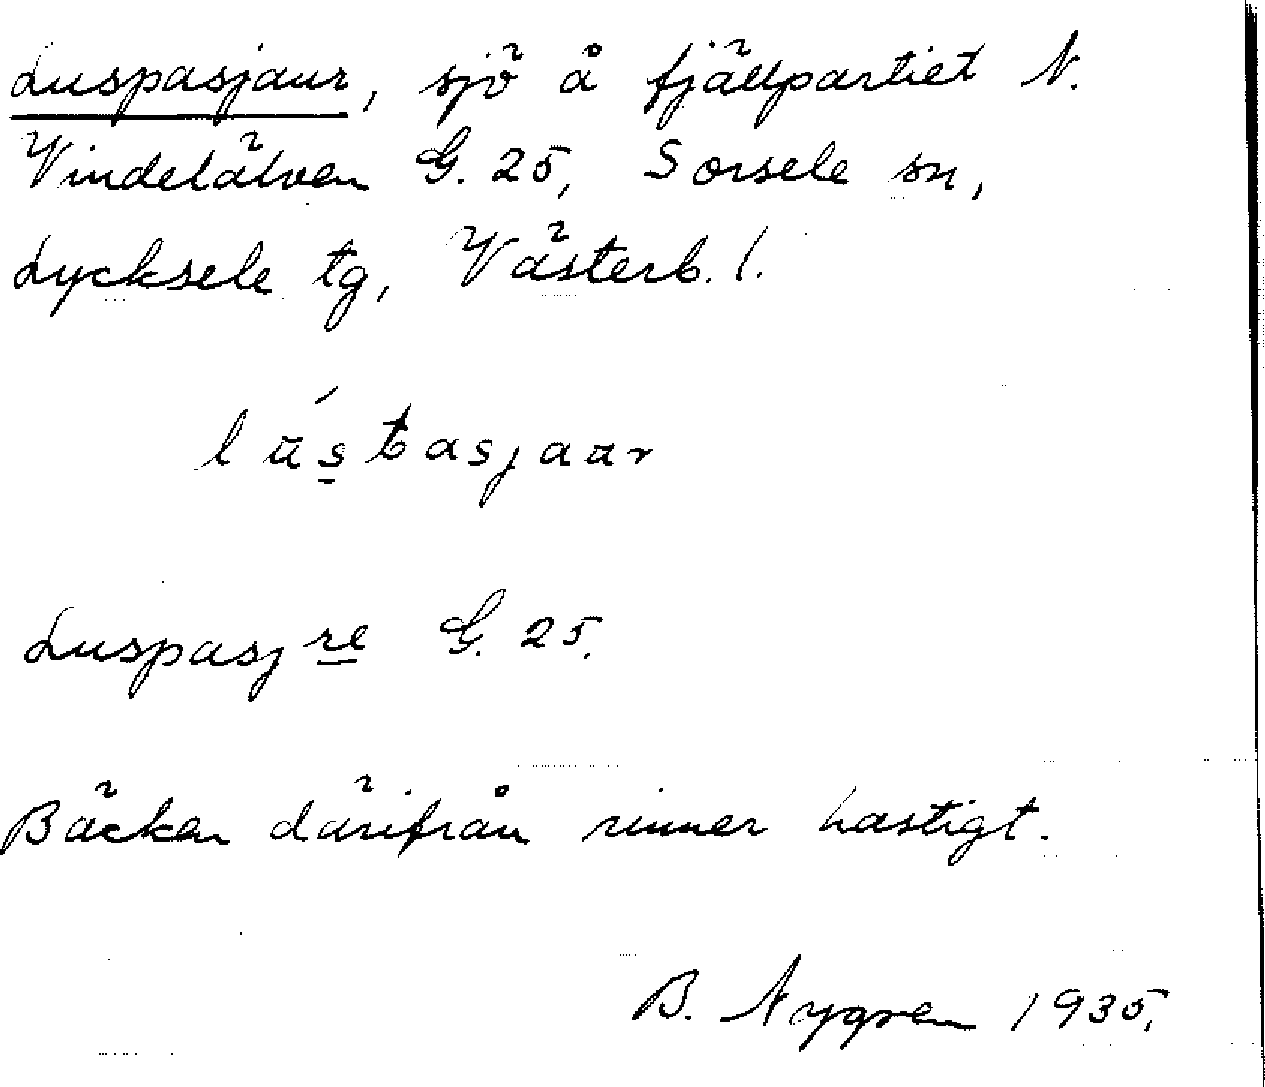 Luspasjaur, sjö å fjällpartiet N.
Vindelälven G. 25, Sorsele sn,
Lycksele tg, Västerb. l.
luś̱basjaur
Luspasjre G. 25.
Bäcken därifrån rinner hastigt.
B. Nygren 1935.